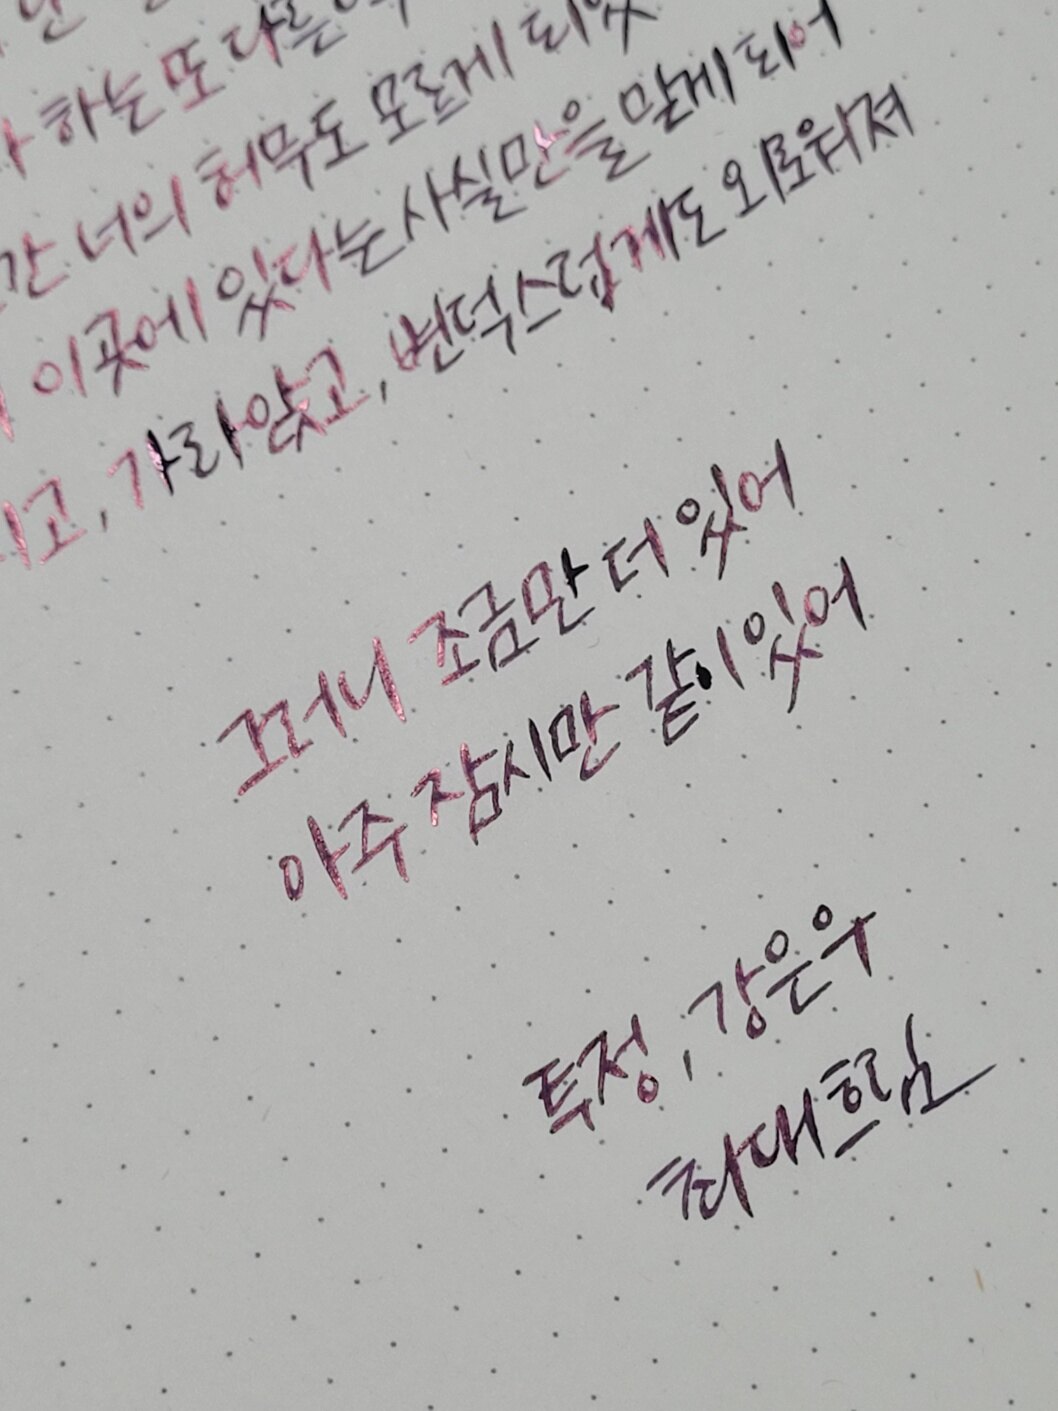 하는 또 다른
너의 허무도 모르게 되었
이곳에 있다는 사실만을 말게 되어
고, 가라앉고, 변덕스럽게도 외로워져
그러니 조금만 더 있어
아주 잠시만 같이 있어
투정, 강은우